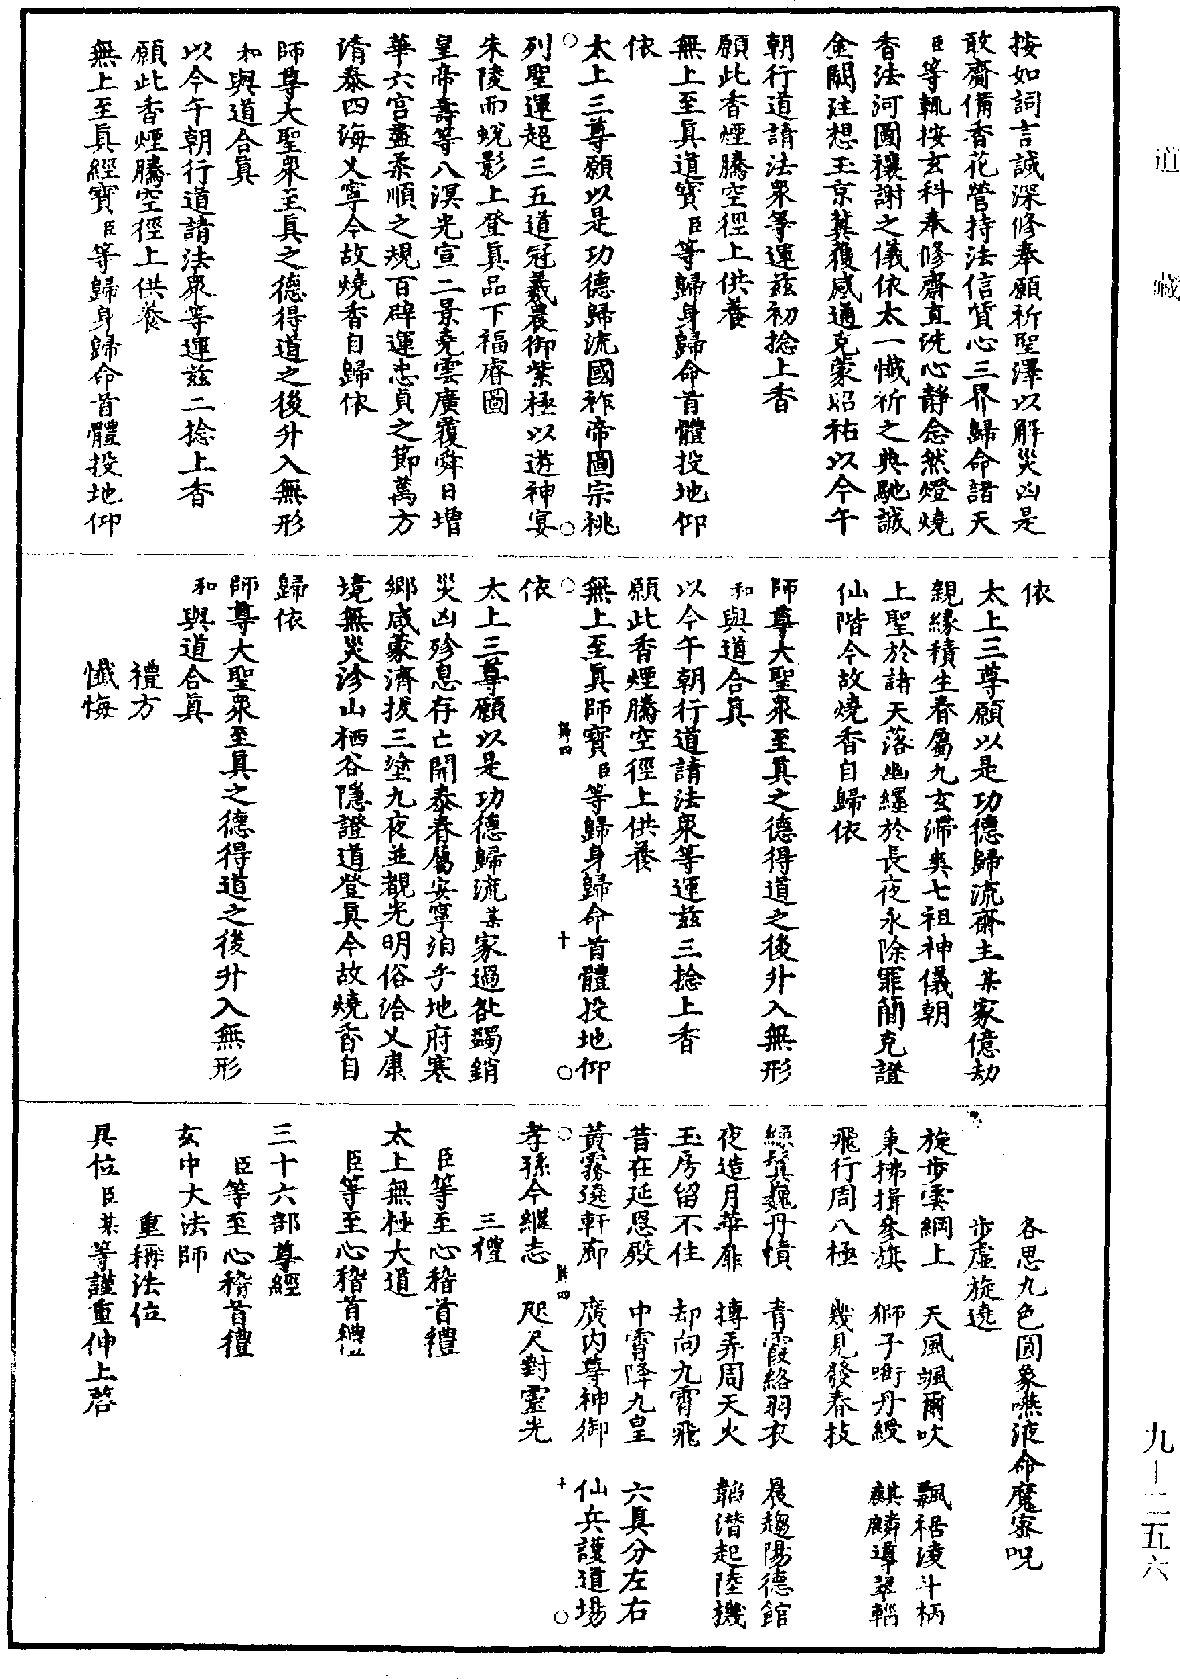 道藏
按如詞言誠深修奉願祈聖澤以解災凶是
敢齋備香花營持法信質心三界歸命諸天
臣等輒按玄科奉修齋直洗心靜念然燈燒
香法河圖禳謝之儀依太一懺祈之典馳誠
金闕注想玉京冀獲感通克蒙昭祐以今午
朝行道請法眾等運茲初捻上香
願此香煙騰空徑上供養
無上至真道寶臣等歸身歸命首體投地仰
依
太上三尊願以是功德歸流國祚帝圖宗祧
列聖運超三五道冠羲農御紫極以遊神宴
朱陵而蛻影上登真品下福睿圖
皇帝壽等八溟光宣二景堯雲廣覆舜日增
華六宮盡柔順之規百辟運忠貞之節萬方
清泰四海乂寧今故燒香自歸依
師尊大聖眾至真之德得道之後升入無形
和與道合真
以今午朝行道請法眾等運茲二捻上香
願此香煙騰空徑上供養
無上至真經寶臣等歸身歸命首體投地仰
依
太上三尊願以是功德歸流齋主某家億劫
親緣積生眷屬九玄滯爽七祖神儀朝
上聖於諸天落幽纆於長夜永除罪簡克證
仙階今故燒香自歸依
師尊大聖眾至真之德得道之後升入無形
和與道合真
以今午朝行道請法眾等運茲三捻上香
願此香煙騰空徑上供養
無上至真師寶臣等歸身歸命首體投地仰
依
太上三尊願以是功德歸流某家過咎蠲銷
災凶殄息存亡開泰眷屬安寧洎乎地府寒
鄉咸蒙濟拔三塗九夜並覩光明俗洽乂康
境無災沴山栖谷隱證道登真今故燒香自
歸依
師尊大聖眾至真之德得道之後升入無形
和與道合真
禮方
懺悔
各思九色圓象嚥液命魔密呪
步虛旋遶
旋步雲綱上 天風颯爾吹 飄裾淩斗柄
秉拂揖參旗 獅子銜丹綬 麒麟導翠輜
飛行周八極 幾見發春枝
綠鬢巍丹幘 青霞絡羽衣 晨趨陽德館
夜造月華扉 摶弄周天火 韜潛起陸機
玉房留不住 却向九霄飛
昔在延恩殿 中霄降九皇 六真分左右
黃霧遶軒廊 廣內尊神御 仙兵護道場
孝孫今繼志 咫尺對靈光
三禮
臣等至心稽首禮
太上無極大道
臣等至心稽首禮
三十六部尊經
臣等至心稽首禮
玄中大法師
重稱法位
具位臣某等謹重伸上啓
九—二五六